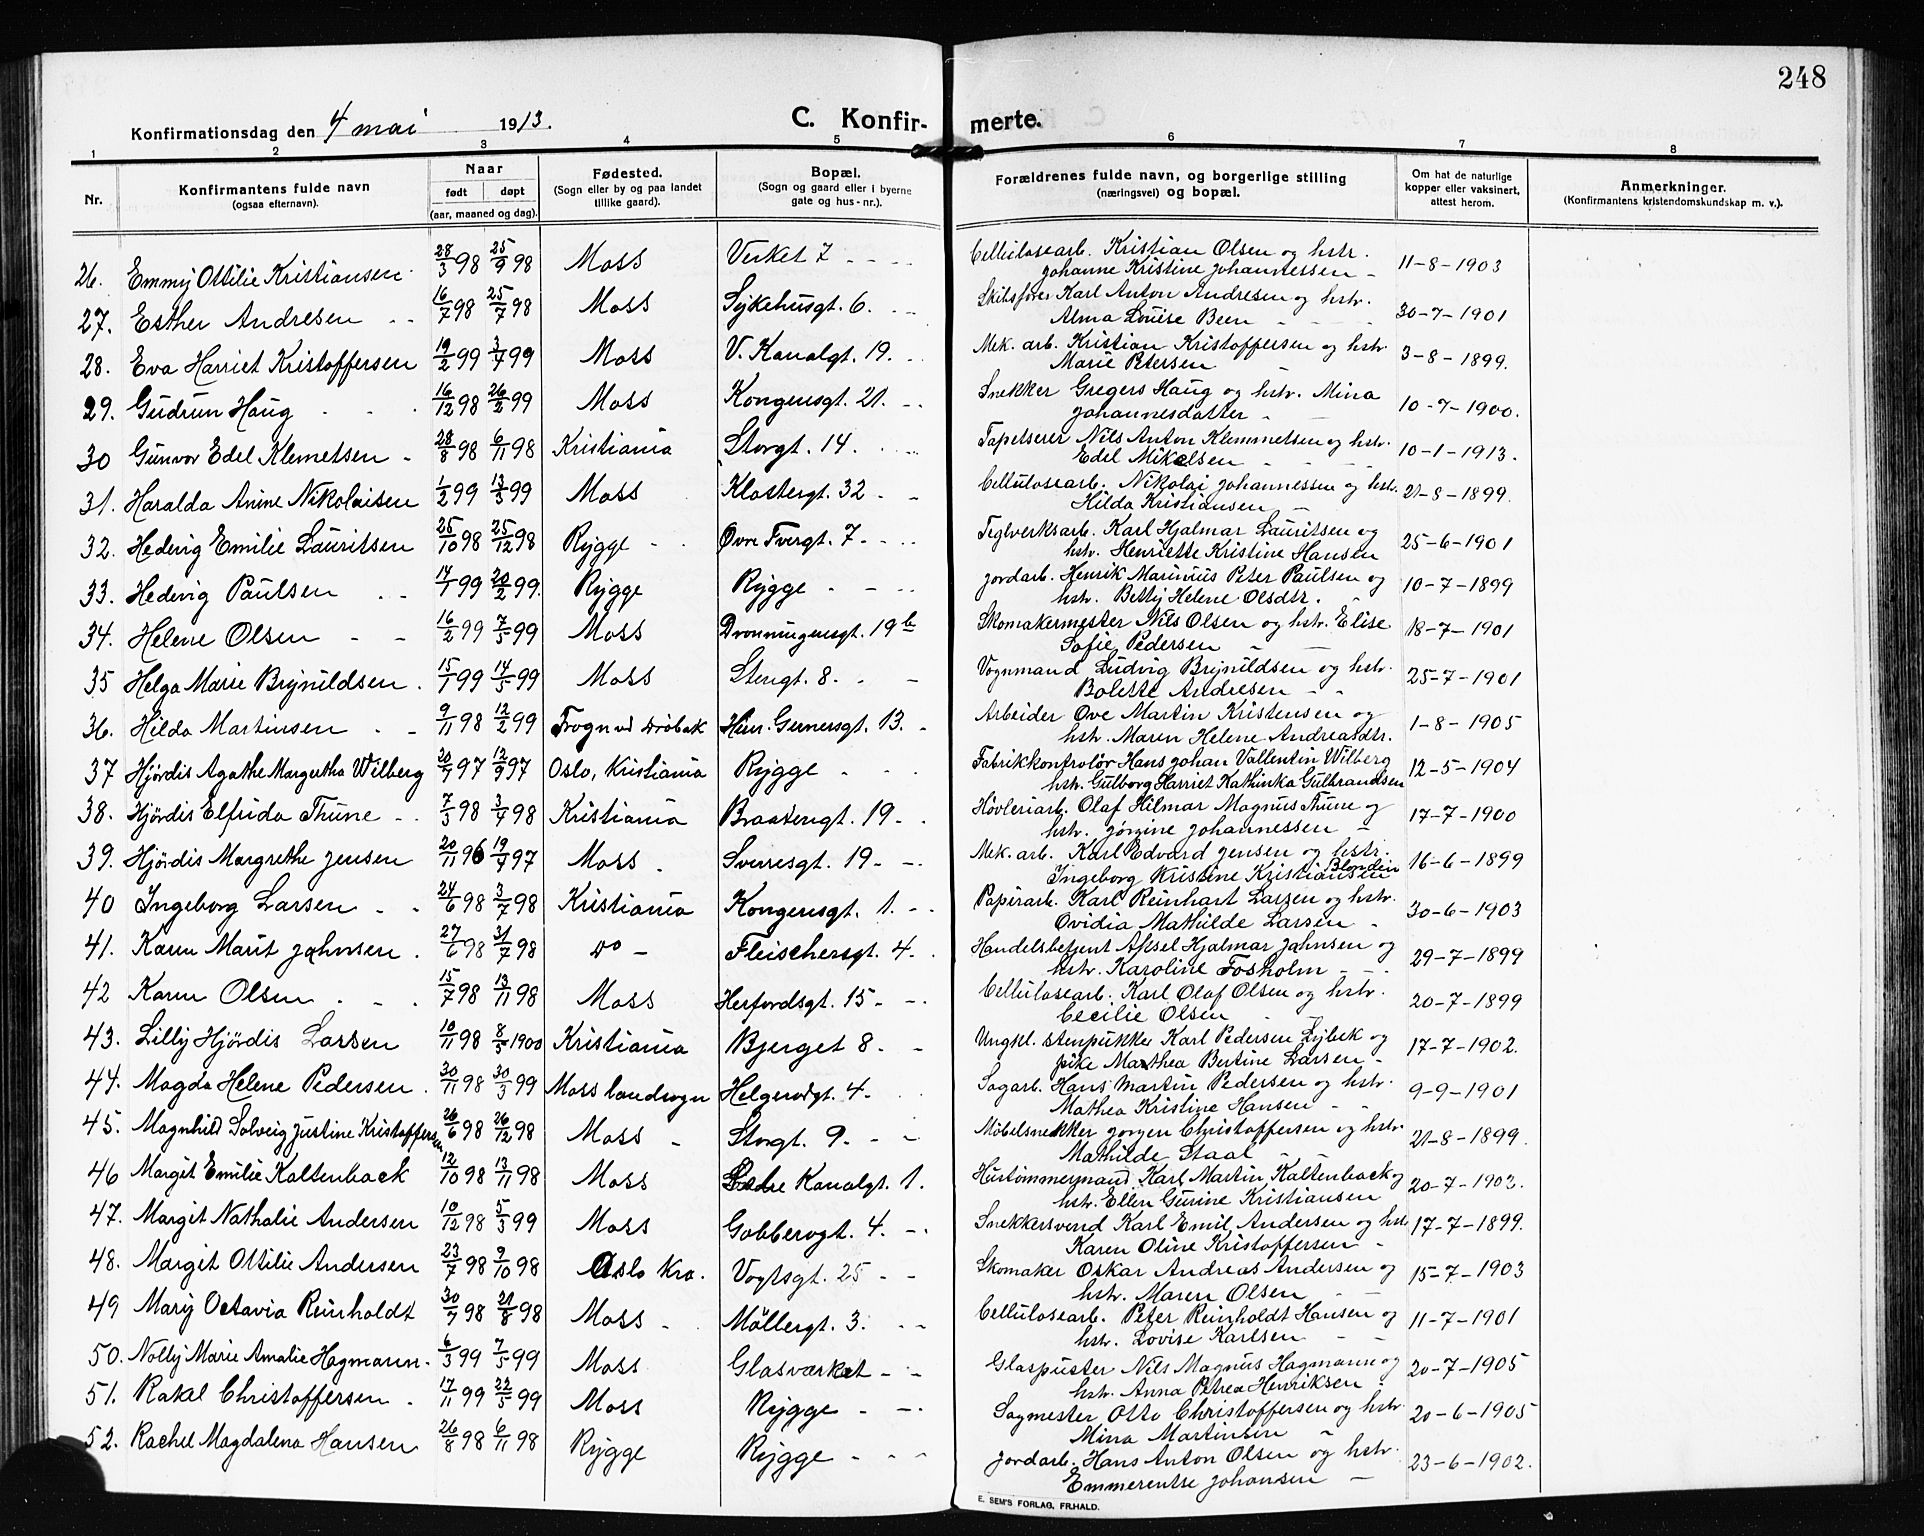 248
Konfirmationsdag den 4 mai 1913.
C. Konfir- merte.
1 2 3 4 5 6 7 8
Nr.
Konfirmantens fulde navn
(ogsaa efternavn).
Naar
født døpt
(aar, maaned og dag).
Fødested.
(Sogn eller by og paa landet
tillike gaard).
Bopæl.
(Sogn og gaard eller i byerne
gate og hus-nr.).
Forældrenes fulde navn, og borgerlige stilling
(næringsvei) og bopæl.
Om hat de naturlige
kopper eller vaksinert,
attest herom.
Anmerkninger.
(Konfirmantens kristendomskundskap m. v.).
26. Emmy Ottilie Kristiansen 28/3 98 25/9 98 Moss Verket 7 Cellulosearb. Kristian Olsen og hstr.
Johanne Kristine Johannessen 11-8-1903
27. Esther Andresen 16/7 98 25/7 98 Moss Sykehusgt. 6. Skibsfører Karl Anton Andresen og hstr.
Alma Louise Been 30-7-1901
28. Eva Harriet Kristoffersen 19/2 99 3/4 99 Moss V. Kanalgt. 19. Mek. arb. Kristian Kristoffersen og hstr
Marie Petersen 3-8-1899.
29. Gudrun Haug 16/12 98 26/2 99 Moss Kongensgt. 21. Snekker Gregers Haug og hstr. Mina
Johannesdatter 10-7-1900.
30 Gunvor Edel Klemetsen 28/8 98 6/11 98 Kristiania Storgt. 14. Tapetserer Nils Anton Klemmetsen og hstr.
Edel Mikelsen 10-1-1913.
31. Haralda Anine Nikolaisen 1/2 99 13/3 99 Moss Klostergt. 32 Cellulosearb. Nikolai Johannessen og hstr.
Hilda Kristiansen 21-8-1899.
32. Hedvig Emilie Lauritsen 25/10 98 25/12 98 Rygge Øvre Tvergt. 7. Teglverksarb. Karl Hjalmar Lauritsen og
hstr. Henriette Kristine Hansen 25-6-1901
33. Hedvig Paulsen 14/1 99 20/2 99. Rygge Rygge Jordarb. Henrik Marinius Peter Paulsen og
hstr. Betty Helene Olsdtr. 10-7-1899
34. Helene Olsen 16/2 99 7/5 99 Moss Dronningensgt. 19b Skomakermester Nils Olsen og hstr. Elise
Sofie Pedersen 18-7-1901
35 Helga Marie Brynildsen 15/1 99 14/5 99 Moss Stengt. 8. Vognmand Ludvig Brynildsen og hstr.
Bolette Andresen 25-7-1901
36. Hilda Martinsen 9/11 98 12/2 99 Frogn ved Drøbak Hen. Gernersgt. 13. Arbeider Ove Martin Kristensen og
hstr. Maren Helene Andreasdtr. 1-8-1905
37 Hjørdis Agathe Margretha Wilberg 20/7 97 12/9 97 Oslo, Kristiania Rygge Fabrikkontrolør Hans Johan Vallentin Wilberg
hstr. Gulborg Harriet Kathinka Gulbrandsen 12-5-1904
38. Hjørdis Elfrida Thune 7/3 98 3/4 98 Kristiania Braatengt. 19. Høvleriarb. Olaf Hilmar Magnus Thune og
hstr. Jørgine Johannessen 17-7-1900
39. Hjørdis Margrethe Jensen 20/11 96 19/4 97 Moss Sverresgt. 19 Mek. arb. Karl Edvard Jensen og hstr.
Ingeborg Kristine Kristiansen Blondin 16-6-1899
40 Ingeborg Larsen 24/6 98 3/7 98 Kristiania Kongensgt. 1. Papirarb. Karl Reinhart Larsen og hstr.
Ovidia Mathilde Larsen 30-6-1903
41. Karen Marit Jahnsen 27/6 98 31/7 98 do Fleischersgt. 4. Handelsbetjent Aksel Hjalmar Jahnsen og
hstr. Karoline Fosholm 29-7-1899
42 Karen Olsen 15/7 98 13/11 98 Moss Herfordsgt. 15 Cellulosearb. Karl Olaf Olsen og hstr.
Cecilie Olsen 20-7-1899
43. Lilly Hjørdis Larsen 10/11 98 8/5 1900 Kristiania Bjerget 8. Ungkl. stenpukker Karl Pedersen Lybek og
pike Marthea Bertine Larsen 17-7-1902.
44. Magda Helene Pedersen 30/11 98 30/3 99 Moss landsogn Helgerødgt. 4. Sagarb. Hans Martin Pedersen og hstr.
Mathea Kristine Hansen 9-9-1901
45. Magnhild Solveig Justine Kristoffersen 26/6 98 26/12 98 Moss Storgt. 9. Møbelsnekker Jørgen Christoffersen og hstr
Mathilde Staal 21-8-1899.
46 Margit Emilie Kaltenback 12/10 98 13/11 98 Moss Søndre Kanalgt. 1. Hustømmermand Karl Martin Kaltenback og
hstr. Ellen Gurine Kristiansen 20-7-1903.
47. Margit Nathalie Andersen 10/12 98 5/3 99 Moss Gobberogt. 4. Snekkersvend Karl Emil Andersen og hstr
Karen Oline Kristoffersen 17-7-1899.
48. Margit Ottilie Andersen 23/7 98 9/10 98 Oslo Kra. Vogtsgt. 25 Skomaker Oskar Andreas Andersen og
hstr. Maren Olsen 15-7-1903
49 Mary Octavia Reinholdt 30/7 98 21/8 98 Moss Møllergt. 3. Cellulosearb. Peter Reinholdt Hansen og
hstr. Lovise Karlsen 11-7-1901
50. Nolly Marie Amalie Hagmann 6/3 99 7/5 99 Moss Glasværket Glaspuster Nils Magnus Hagmann og
hstr. Anna Petrea Henriksen 20-7-1905
51. Rakel Christoffersen 17/11 99 22/5 99 Moss Rygge Sagmester Otto Christoffersen og hstr
Mina Martinsen 20-6-1905
52. Rachel Magdalena Hansen 26/8 98 6/11 98 Rygge Rygge Jordarb. Hans Anton Olsen og hstr.
Emmerentse Johansen 23-6-1902.
E. SEM'S FORLAG, FR.HALD.